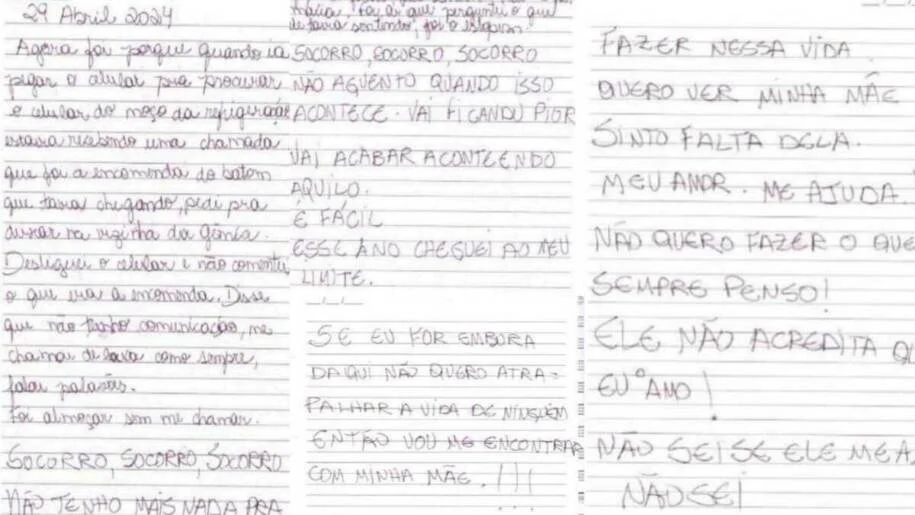 29 Abril 2024
Agora foi porque quando ia
pegar o celular pra procurar
o celular do moço da refrigeração
estava recebendo uma chamada
que foi a encomenda do batom
que tava chegando, pedi pra
deixar na vizinha da
Desliguei o celular e não comentei
o que era a encomenda. Disse
que não tenho comunicação, me
chamou de como sempre,
falou palavrões.
Foi almoçar sem me chamar.
SOCORRO, SOCORRO, SOCORRO
NÃO TENHO MAIS NADA PRA
foi aí que perguntei o que
sentindo, foi
SOCORRO, SOCORRO, SOCORRO
NÃO AGUENTO QUANDO ISSO
ACONTECE. VAI FICANDU PIOR
VAI ACABAR ACONTECENDO
AQUILO.
É FÁCIL
ESSE ANO CHEGUEI AO MEU
LIMITE.
SE EU FOR EMBORA
DAQUI NÃO QUERO ATRA-
PALHAR A VIDA DE NINGUÉM
ENTÃO VOU ME ENCONTRAR
COM MINHA MÃE. !!!
...
FAZER NESSA VIDA
QUERO VER MINHA MÃE
SINTO FALTA DELA.
MEU AMOR. ME AJUDA.
NÃO QUERO FAZER O QUE
SEMPRE PENSO!
ELE NÃO ACREDITA QU
EU O AMO!
NÃO SEI SE ELE ME A
NÃO SEI